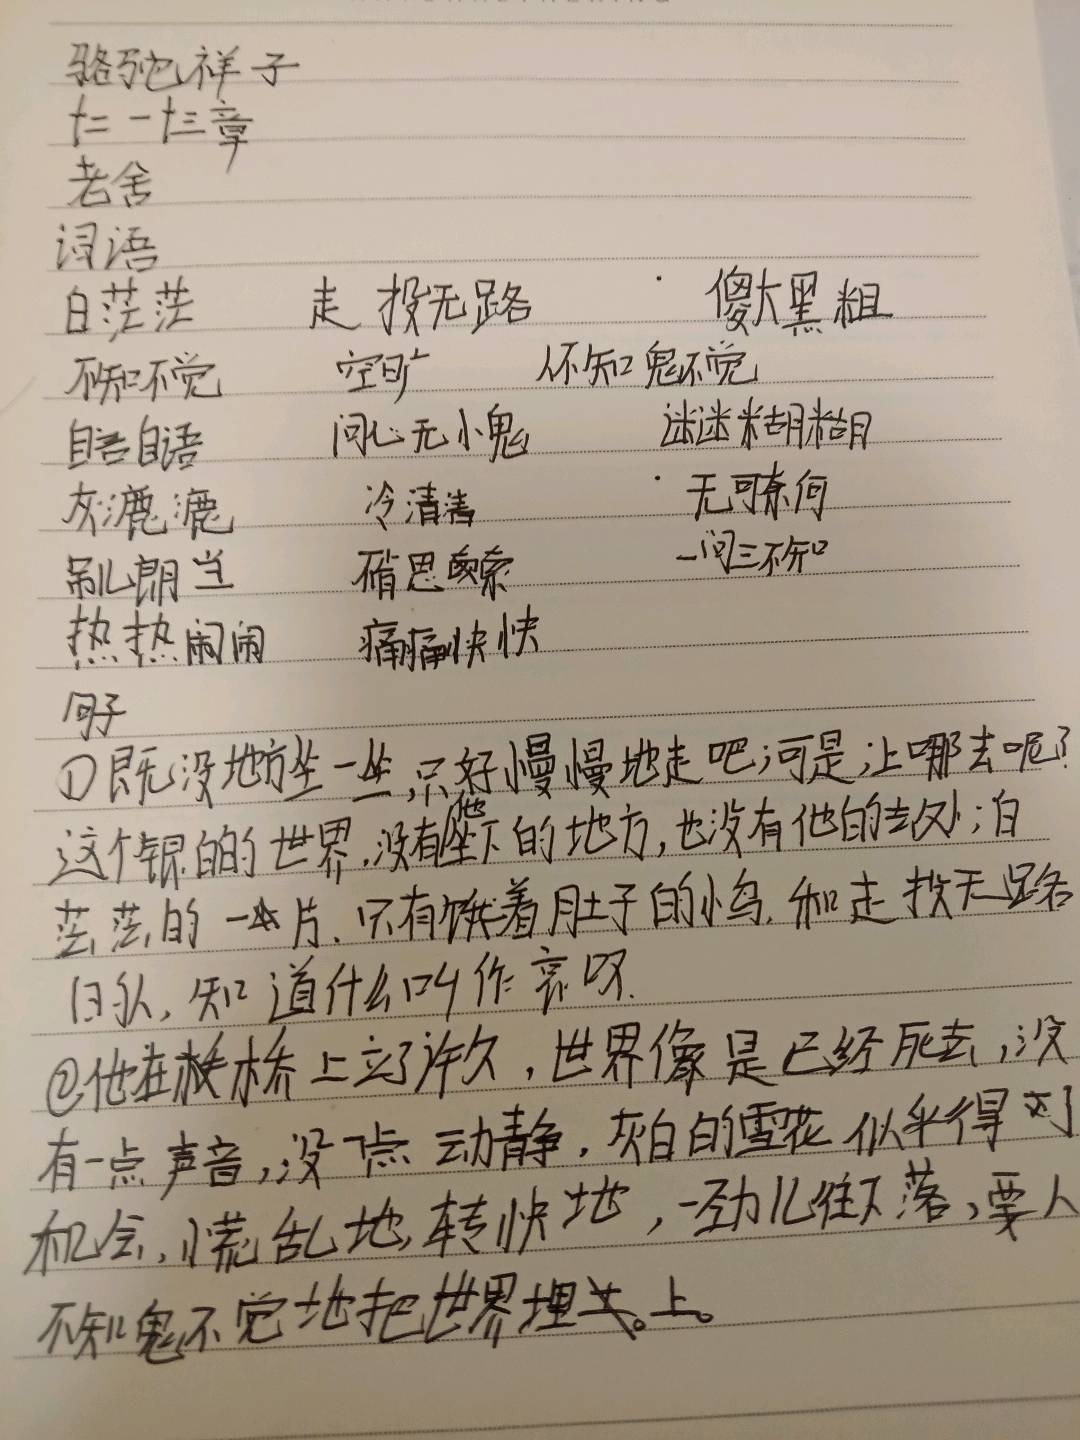 骆驼祥子
十二一十三章
老舍
词语
白茫茫 走投无路 傻大黑粗
不知不觉 空旷 人不知鬼不觉
自言自语 问心无愧 迷迷糊糊
灰漉漉 冷清清 无可奈何
啷当 思索 一问三不知
热热闹闹 痛痛快快
句子
①既没地方坐一坐,只好慢慢地走吧;可是,上哪去呢?
这个银白的世界,没有他坐下的地方,也没有他的去处;白
茫茫的一片,只有饿着肚子的小鸟,和走投无路
的人,知道什么叫作哀叹.
②他在桥上立了许久,世界像是已经死去,没
有一点声音,没一点动静,灰白的雪花似乎得了
机会,慌乱地,轻快地,一劲儿往下落,要人
不知鬼不觉地把世界埋上。